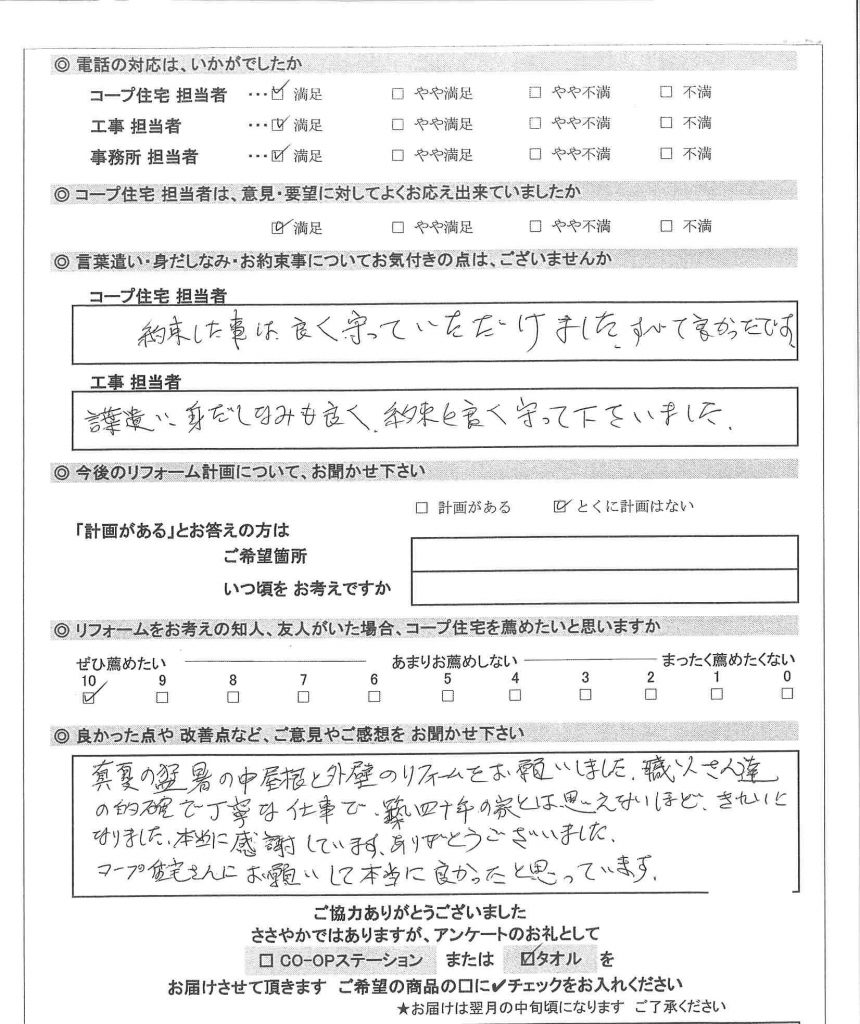 ◎ 電話の対応は、いかがでしたか
コープ住宅 担当者 …☑ 満足 □ やや満足 □ やや不満 □ 不満
工事 担当者 …☑ 満足 □ やや満足 □ やや不満 □ 不満
事務所 担当者 …☑ 満足 □ やや満足 □ やや不満 □ 不満
◎ コープ住宅 担当者は、意見・要望に対してよくお応え出来ていましたか
☑ 満足 □ やや満足 □ やや不満 □ 不満
◎ 言葉遣い・身だしなみ・お約束事についてお気付きの点は、ございませんか
コープ住宅 担当者
約束した事は、良く守っていただけました。すべて良かったです
工事 担当者
言葉遣い、身だしなみも良く、約束も良く守って下さいました。
◎ 今後のリフォーム計画について、お聞かせ下さい
□ 計画がある ☑ とくに計画はない
「計画がある」とお答えの方は
ご希望箇所
いつ頃を お考えですか
◎ リフォームをお考えの知人、友人がいた場合、コープ住宅を薦めたいと思いますか
ぜひ薦めたい あまりお薦めしない まったく薦めたくない
10 9 8 7 6 5 4 3 2 1 0
☑ □ □ □ □ □ □ □ □ □ □
◎ 良かった点や 改善点など、ご意見やご感想を お聞かせ下さい
真夏の猛暑の中屋根と外壁のリフォームをお願いしました。職人さん達
の的確で丁寧な仕事で、築四十年の家とは思えないほど、きれいに
なりました。本当に感謝しています。ありがとうございました。
コープ住宅さんにお願いして本当に良かったと思っています。
ご協力ありがとうございました
ささやかではありますが、アンケートのお礼として
□ CO-OPステーション または ☑タオル を
お届けさせて頂きます ご希望の商品の口に✔チェックをお入れください
★お届けは翌月の中旬頃になります ご了承ください